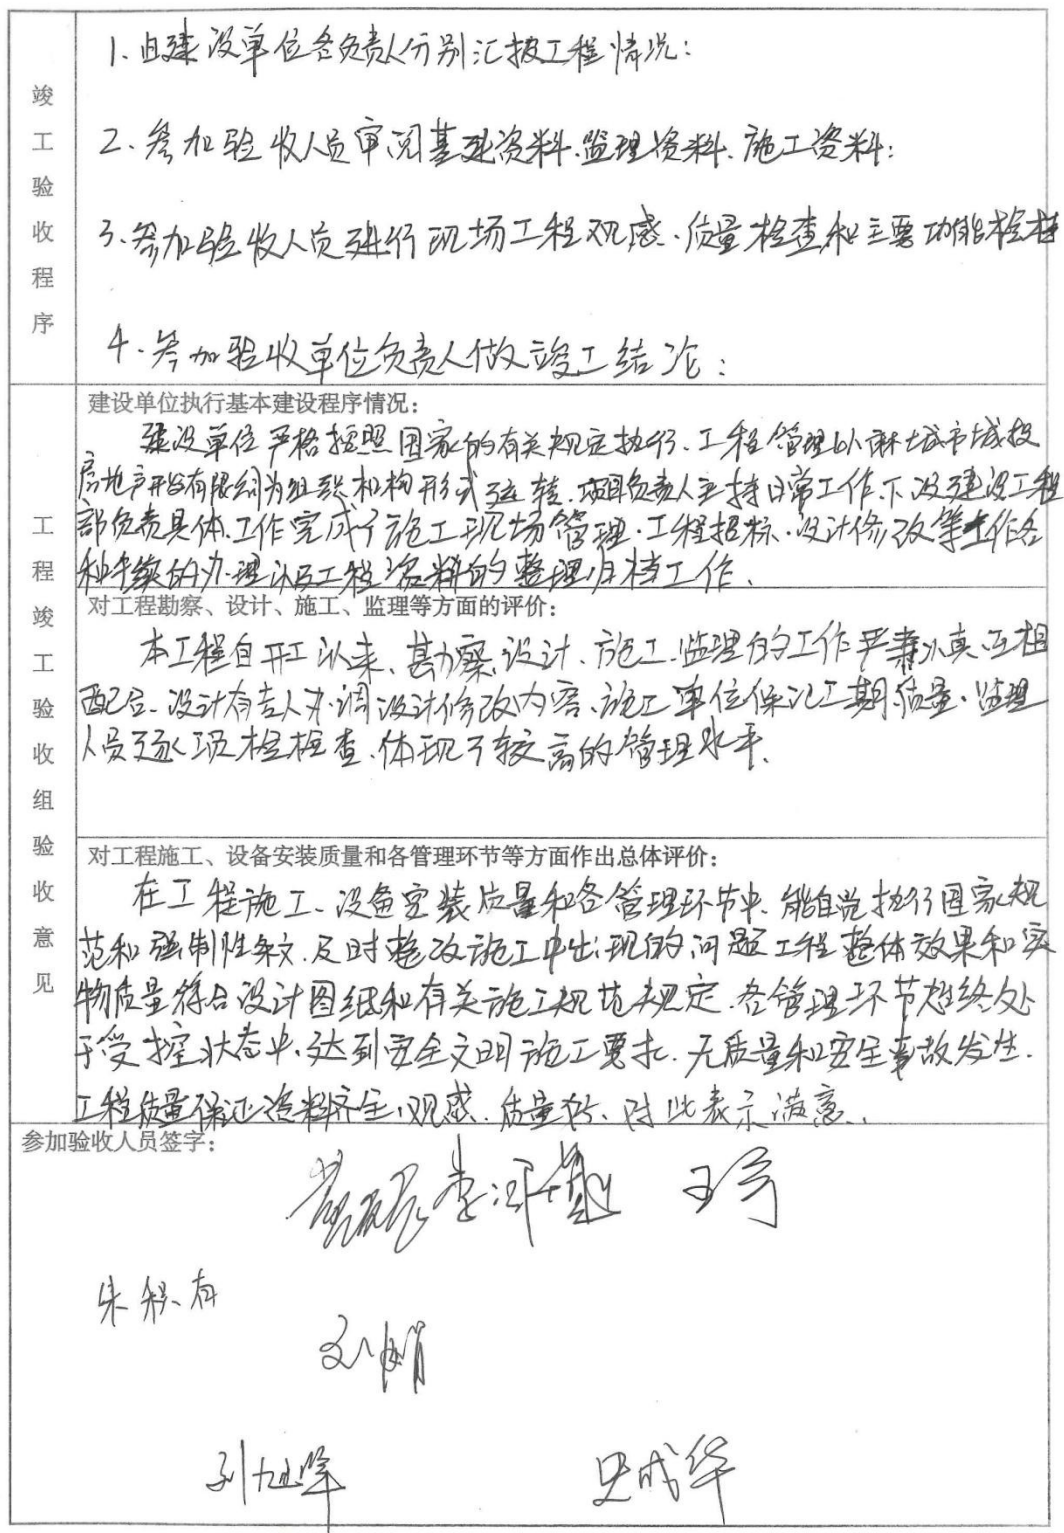 竣工验收程序
1、由建设单位各负责人分别汇报工程情况:
2、参加验收人员审阅基建资料、监理资料、施工资料:
3、参加验收人员进行现场工程观感、质量检查和主要功能检查
4、参加验收单位负责人做竣工结论:
工程竣工验收组验收意见
建设单位执行基本建设程序情况:
建设单位严格按照国家的有关规定执行、工程管理以麻城市城投
房地产开发有限公司为组织机构形式运转、项目负责人主持日常工作、下设建设工程
部负责具体工作完成了施工现场管理、工程招标、设计修改等工作各
种手续的办理以及工程资料的整理归档工作、
对工程勘察、设计、施工、监理等方面的评价:
本工程自开工以来、勘察、设计、施工、监理的工作严肃认真、互相
配合、设计负责人办调设计修改内容、施工单位保证工期质量、监理
人员逐项检检查、体现了较高的管理水平、
对工程施工、设备安装质量和各管理环节等方面作出总体评价:
在工程施工、设备安装质量和各管理环节中、能自觉执行国家规
范和强制性条文、及时整改施工中出现的问题工程整体效果和实
物质量符合设计图纸和有关施工规范规定、各管理环节始终处
于受控状态中、达到安全文明施工要求、无质量和安全事故发生.
工程质量保证资料齐全、观感、质量好、对此表示满意、
参加验收人员签字:
王芳
朱积有
刘娟
刘旭峰
史成华